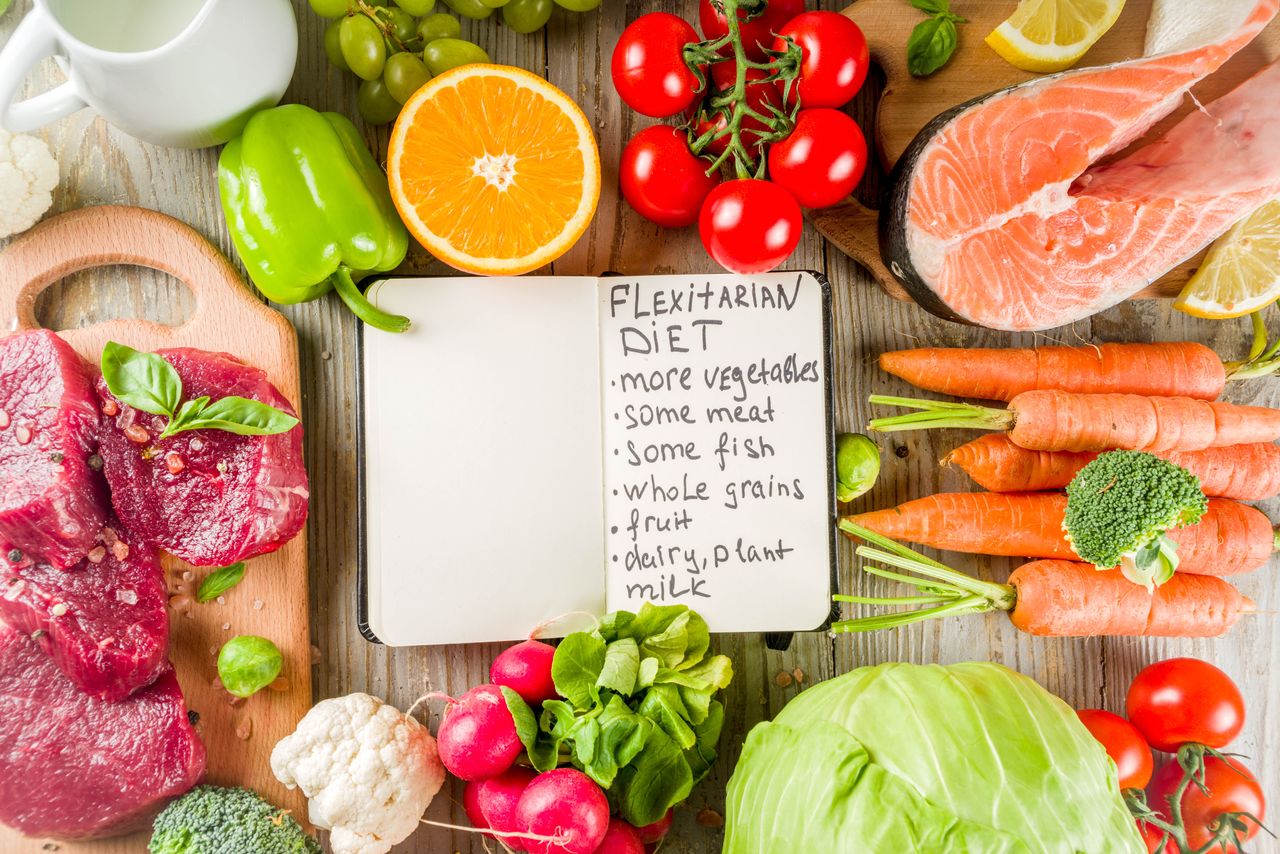 FLEXiTARiAN
DiET
• more vegetables
• some meat
• some fish
• whole grains
• fruit
• dairy, plant
milk